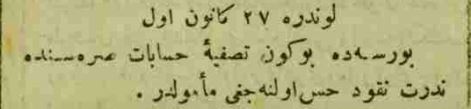 لوندره ٢٧ كانون اول
بورسه‌ده بوكون تصفيۀ حسابات صره‌سنده
ندرت نقود حس اولنه‌جغى مأمولدر .